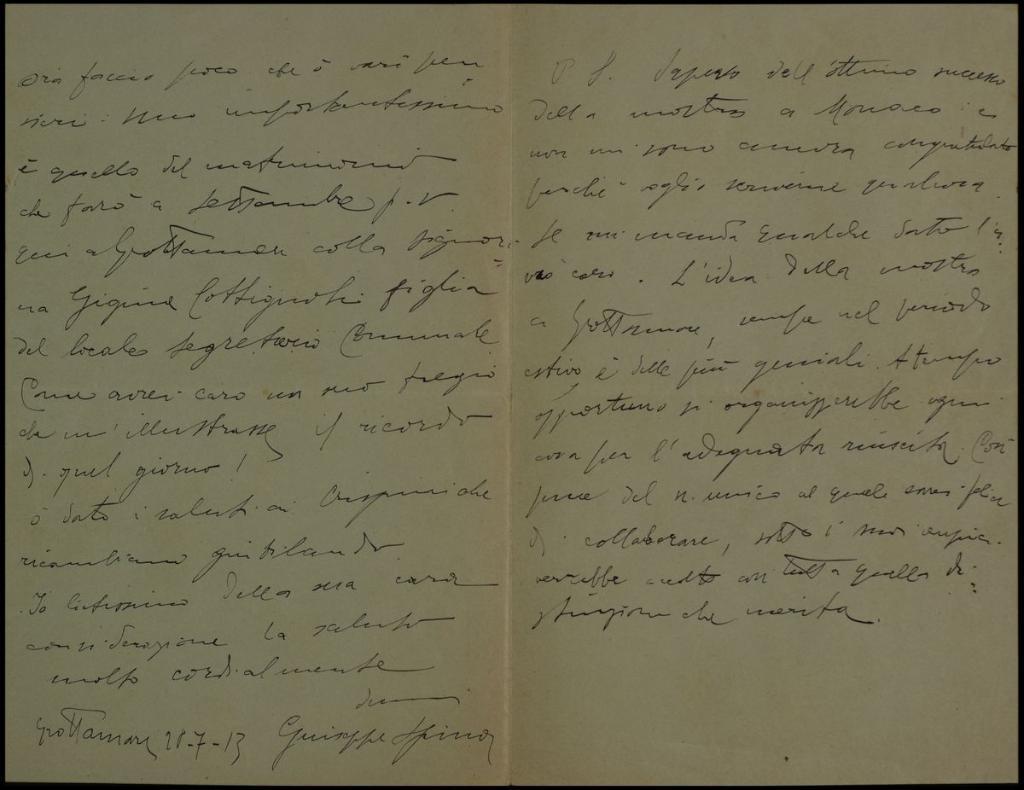 ora faccio poco che ò vari pen
sieri: uno importantissimo
è quello del matrimonio
che farò a settembre p.v.
qui a Grottamare colla signori=
na Gigina Cottignoli figlia
del locale segretario Comunale
Come avrei caro un suo fregio
che m'illustrasse il ricordo
di quel giorno!
ò dato i saluti ai Crispini che
ricambiano giubilando.
Io lietissimo della sua cara
considerazione la saluto
molto cordialmente
Giuseppe Spina
Grottamare 28-7-13
P.S. Sapevo dell'ottimo successo
della mostra a Monaco: e
non mi sono ancora congratulato
perché voglio scriverne qualcosa.
Se mi manda qualche dato l'a=
vrò caro. L'idea della mostra
a Grottamare, sempre nel periodo
estivo, è delle più geniali. A tempo
opportuno si organizzerebbe ogni
cosa per l'adeguata riuscita. Così
pure del n. unico al quale sarei felice
di collaborare, sotto i suoi auspici.
verrebbe accolto con tutta quella di=
stinzione che merita.